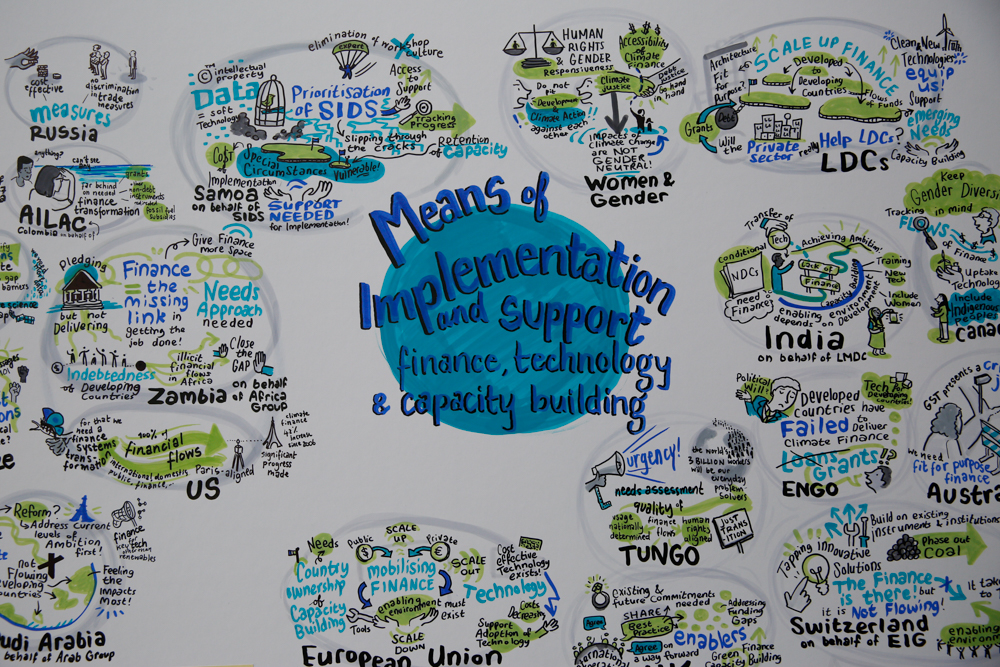 Means of
Implementation
and support
finance, technology
& capacity building
cost
effective
no
discrimination
in trade
measures
measures
RUSSIA
anything?
can't see
any
grants
Far behind
on needed
finance
transformation
non-debt
instruments
fossil fuel
subsidies
AILAC
Colombia on behalf of
elimination of workshop
culture
expert
© intellectual
property
Data
= soft
Technology
Prioritisation
of SIDS
Access
to
Support
Tracking
Progress
slipping through
the cracks
Retention
of Capacity
Cost
Special
Circumstances
Vulnerable!
Implementation
SUPPORT
NEEDED
for Implementation!
Samoa
on behalf of
SIDS
HUMAN
RIGHTS
& GENDER
Responsiveness
Accessibility
of Climate
Finance
Climate
Justice
Debt
Justice
Go hand
in hand
Do not
pit
Development
Climate Action!!
against each
other
impacts of
climate change
are NOT
GENDER
NEUTRAL!
Women &
Gender
Architecture
Fit
for
Purpose
SCALE UP FINANCE
Developed
to
Developing
Countries
Flows
of Funds
Clean & New
Technologies
equip
us!
Support
emerging
Needs
Capacity Building
Grants
Debt
Will the
Private
Sector
really
Help LDCs?
LDCs
Keep
Gender Diversi
in mind
Tracking
FLOWS
of Finance
Uptake
Technology
Include
Indigenous
Peoples
Cana
Give Finance
more Space
Pledging
but not
Delivering
Finance
= the
missing
link in
getting the
job done!
Needs
Approach
needed
Indebtedness
of Developing
Countries
illicit
financial
flows in
Africa
Close
the
GAP
Zambia
on behalf
of Africa
Group
Transfer of
Tech
Achieving Ambition!
Conditional
NDCs
need
Finance!
Lack of
Finance
Capacity Building
enabling environment
depends on Development
Training
New
Tech
Include
Women
India
on behalf of LMDC
for that we
need a
finance
systems
trans-
formation
100% of
Financial
flows
international, domestic
public finance...
Paris-aligned
climate
finance
increase
since 2006
significant
progress
made
US
Political
Will?
Developed
countries have
Failed to
Deliver
Climate Finance
Tech
Developing
countries!
Loans
Grants
!?
ENGO
GST presents a Cr
we need
fit for purpose
finance
Austra
Reform?
Address current
levels of
Ambition
first!
finance
key tech
renewables
not
Flowing
developing
countries
Feeling
the
Impacts
Most!
udi Arabia
behalf of Arab Group
Needs
Country
ownership
of
Capacity
Building
Public
SCALE
UP
Private
$
€
mobilising
FINANCE
SCALE
OUT
enabling
environment
must
exist
Tools
SCALE
DOWN
Cost
effective
Technology
exists!
Technology
Costs
Decreasing
Support
Adoption of
Technology
European Union
urgency!
the world's
3 BILLION workers
will be our
everyday
problem
solvers
needs assessment
quality of
usage
nationally
determined
finance
flows
human
rights
aligned
JUST
TRANS
ITION
TUNGO
existing &
future
Commitments
needed
SHARE
Best
Practice
Agree
Agree on
a way forward
enablers
Addressing
Funding
Gaps
Green Finance
Capacity Building
Tapping innovative
Solutions
Build on existing
instruments & institutions
Phase out
Coal
The Finance
is there! but
it is Not Flowing!
It take
to
enabling
environ
Switzerland
on behalf of EIG